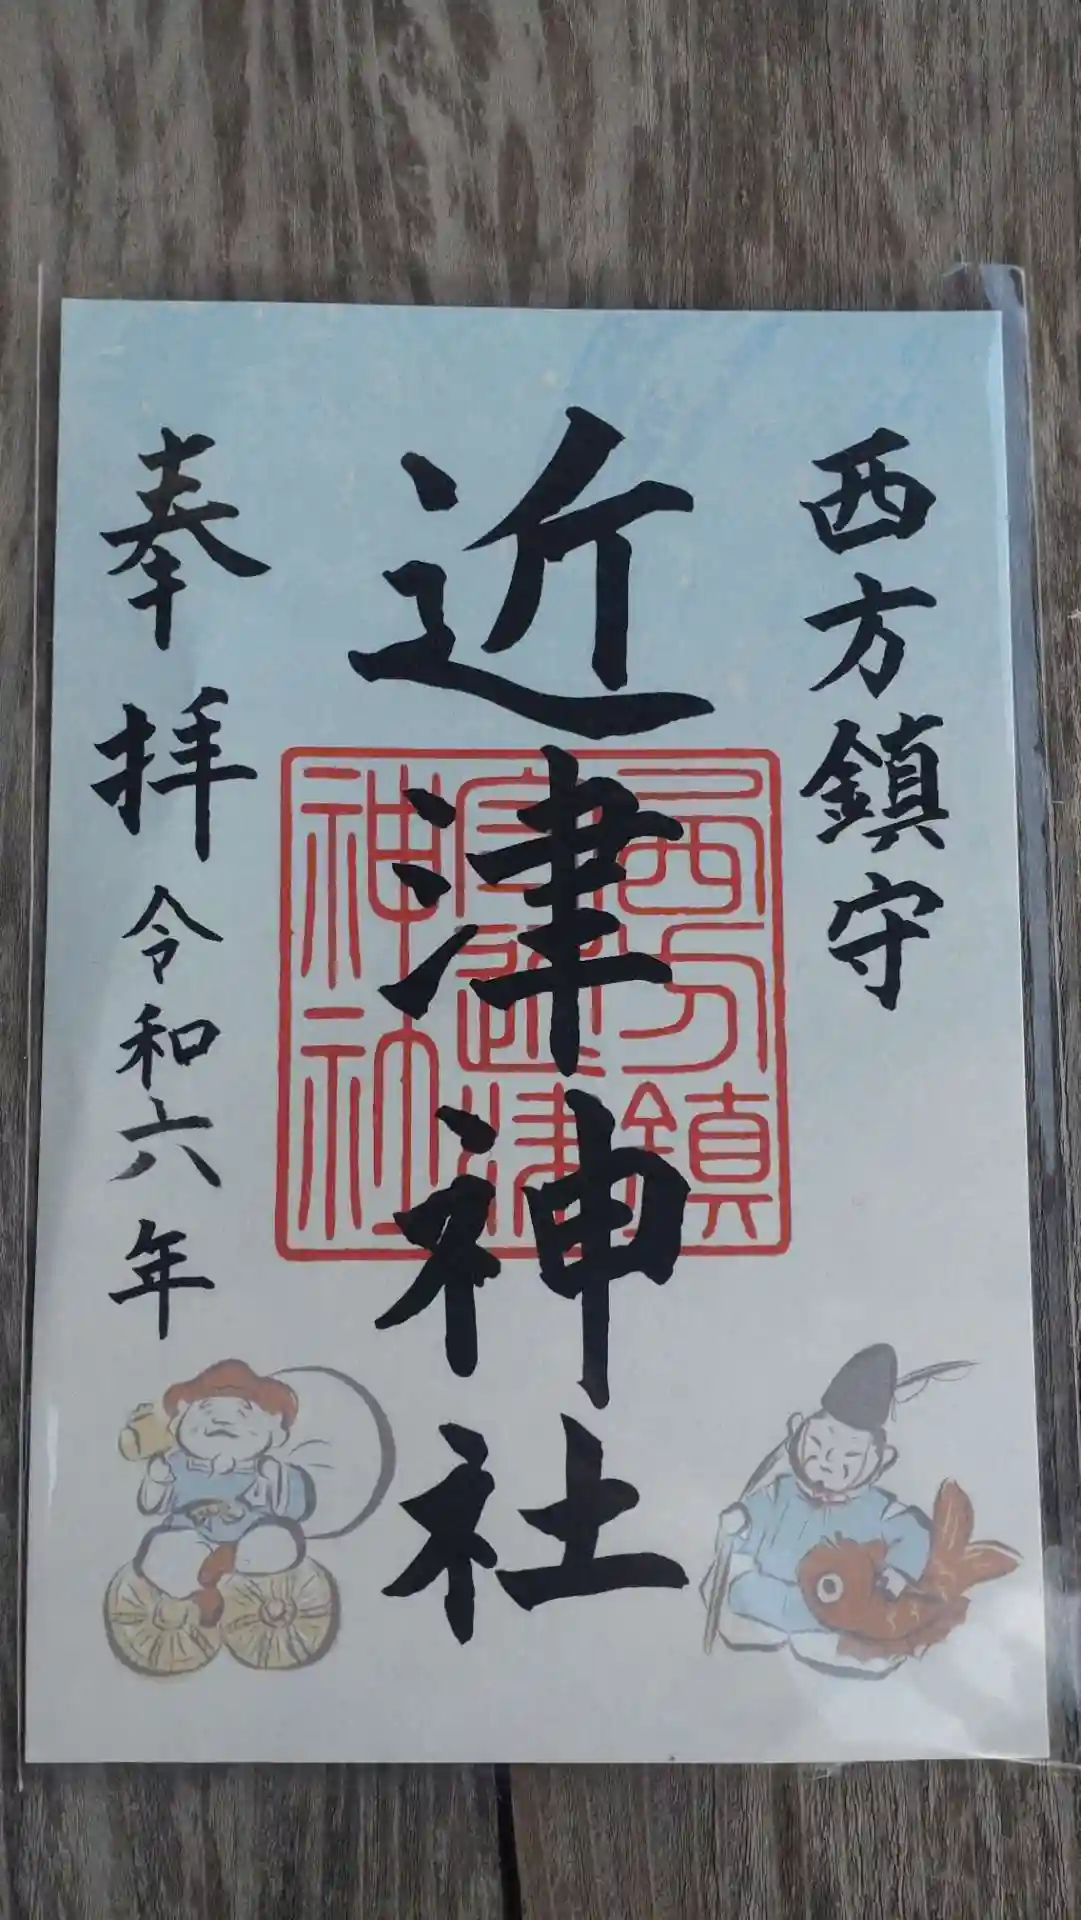 西方鎮守
近津神社
奉拝 令和六年
西方鎮
近津
神社